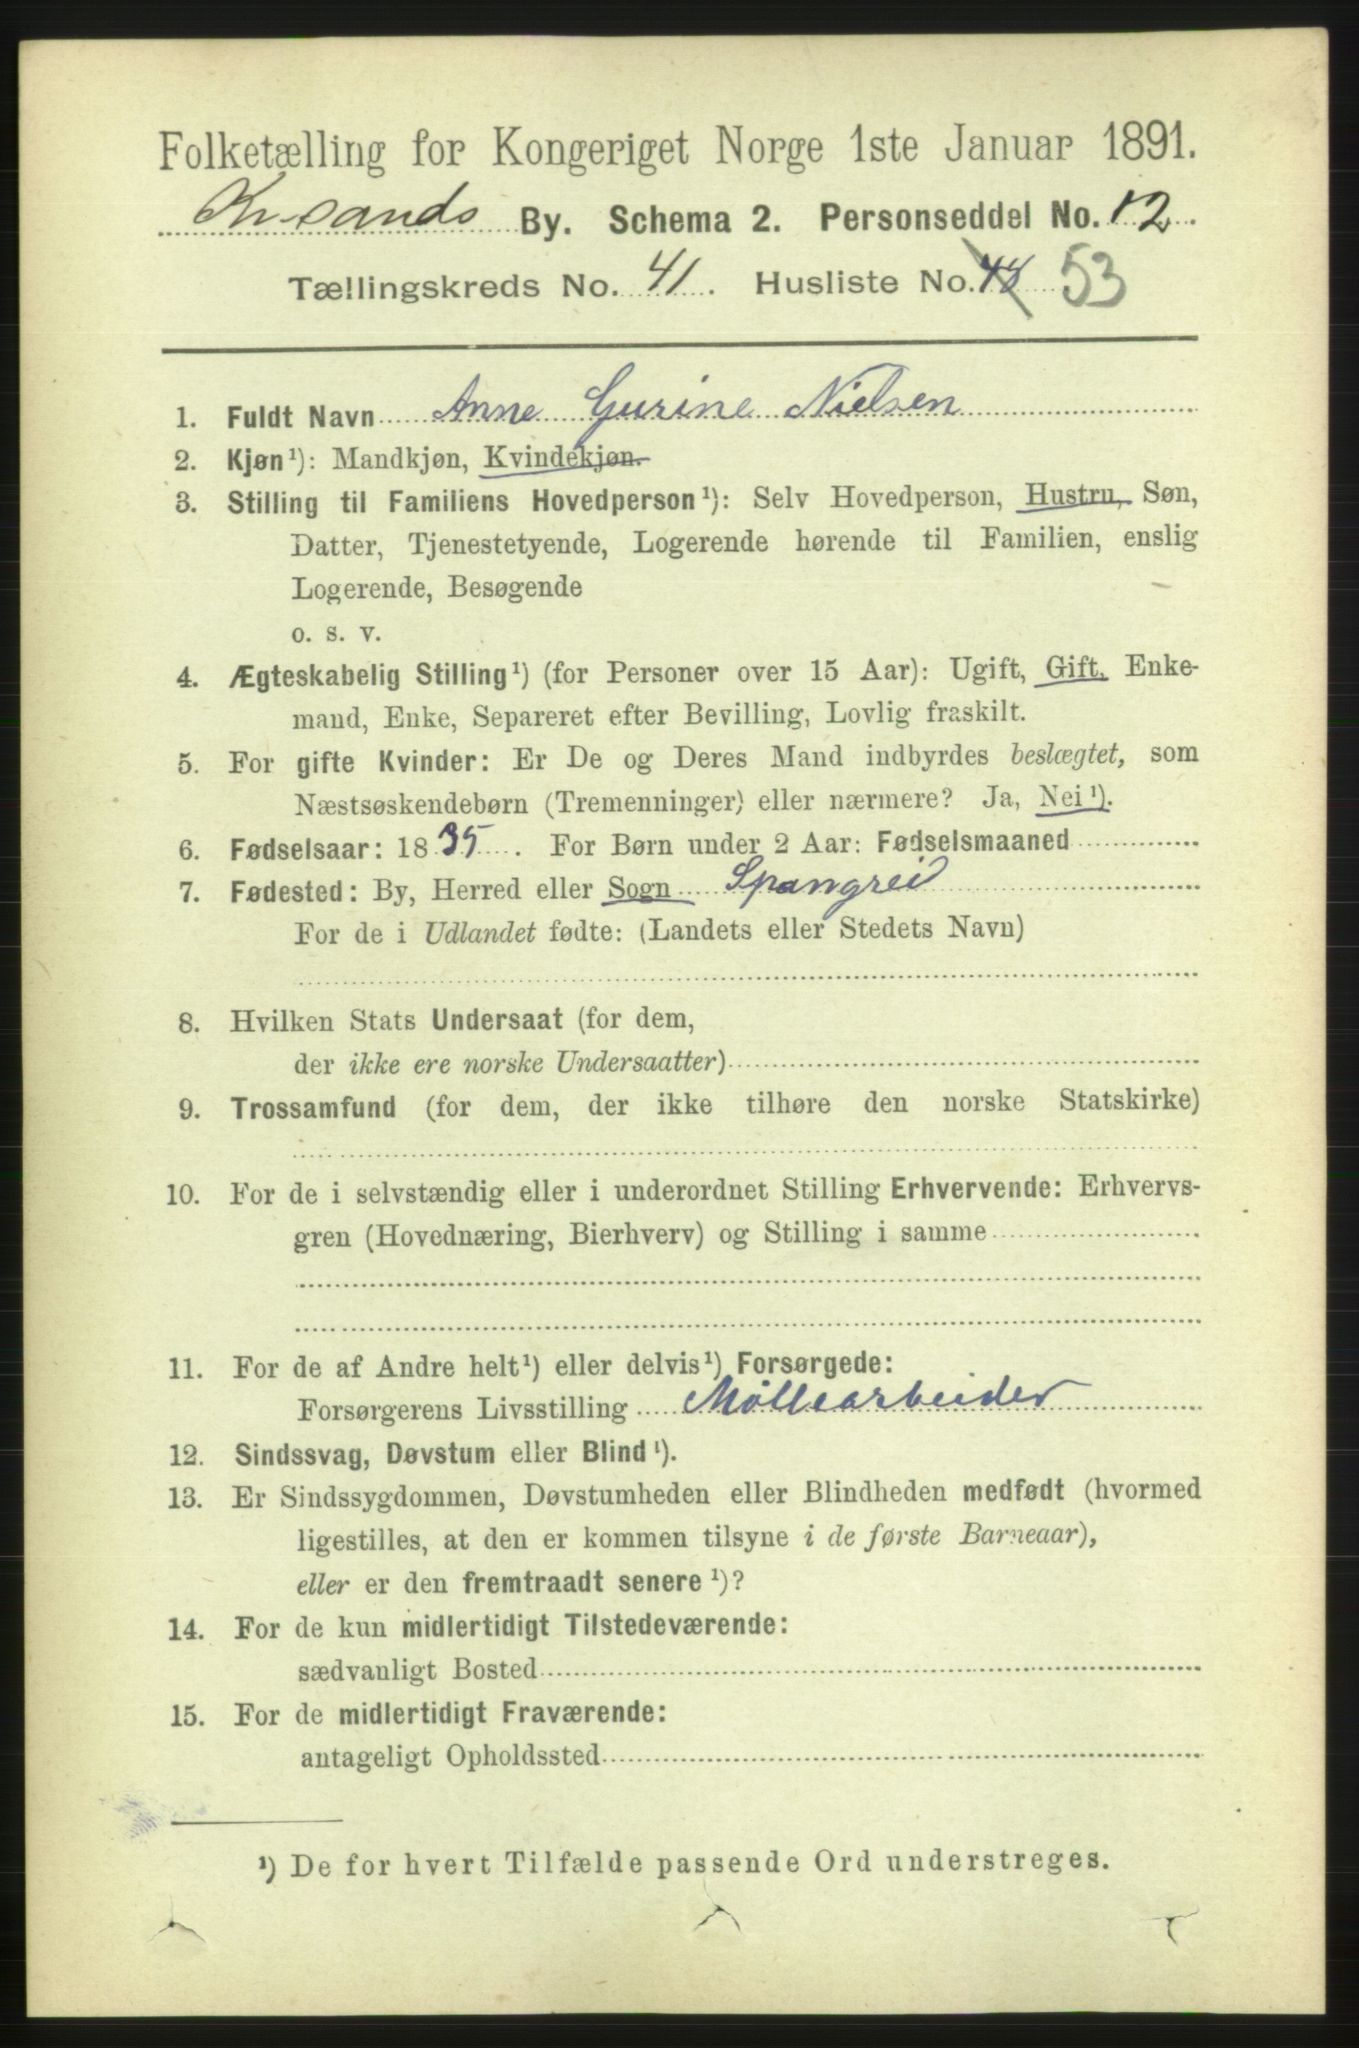 Folketælling for Kongeriget Norge 1ste Januar 1891.
Kr.sands By. Schema 2. Personseddel No. 12.
Tællingskreds No. 41. Husliste No. 53
1. Fuldt Navn Anne Gurine Nielsen
2. Kjøn¹): Mandkjøn, Kvindekjøn.
3. Stilling til Familiens Hovedperson¹): Selv Hovedperson, Hustru, Søn,
Datter, Tjenestetyende, Logerende hørende til Familien, enslig
Logerende, Besøgende
o. s. v.
4. Ægteskabelig Stilling¹) (for Personer over 15 Aar): Ugift, Gift, Enke-
mand, Enke, Separeret efter Bevilling, Lovlig fraskilt.
5. For gifte Kvinder: Er De og Deres Mand indbyrdes beslægtet, som
Næstsøskendebørn (Tremenninger) eller nærmere? Ja, Nei¹).
6. Fødselsaar: 1835. For Børn under 2 Aar: Fødselsmaaned
7. Fødested: By, Herred eller Sogn Spangreid
For de i Udlandet fødte: (Landets eller Stedets Navn)
8. Hvilken Stats Undersaat (for dem,
der ikke ere norske Undersaatter)
9. Trossamfund (for dem, der ikke tilhøre den norske Statskirke)
10. For de i selvstændig eller i underordnet Stilling Erhvervende: Erhvervs-
gren (Hovednæring, Bierhverv) og Stilling i samme
11. For de af Andre helt¹) eller delvis¹) Forsørgede:
Forsørgerens Livsstilling Møllearbeider
12. Sindssvag, Døvstum eller Blind¹).
13. Er Sindssygdommen, Døvstumheden eller Blindheden medfødt (hvormed
ligestilles, at den er kommen tilsyne i de første Barneaar),
eller er den fremtraadt senere¹)?
14. For de kun midlertidigt Tilstedeværende:
sædvanligt Bosted
15. For de midlertidigt Fraværende:
antageligt Opholdssted
¹) De for hvert Tilfælde passende Ord understreges.